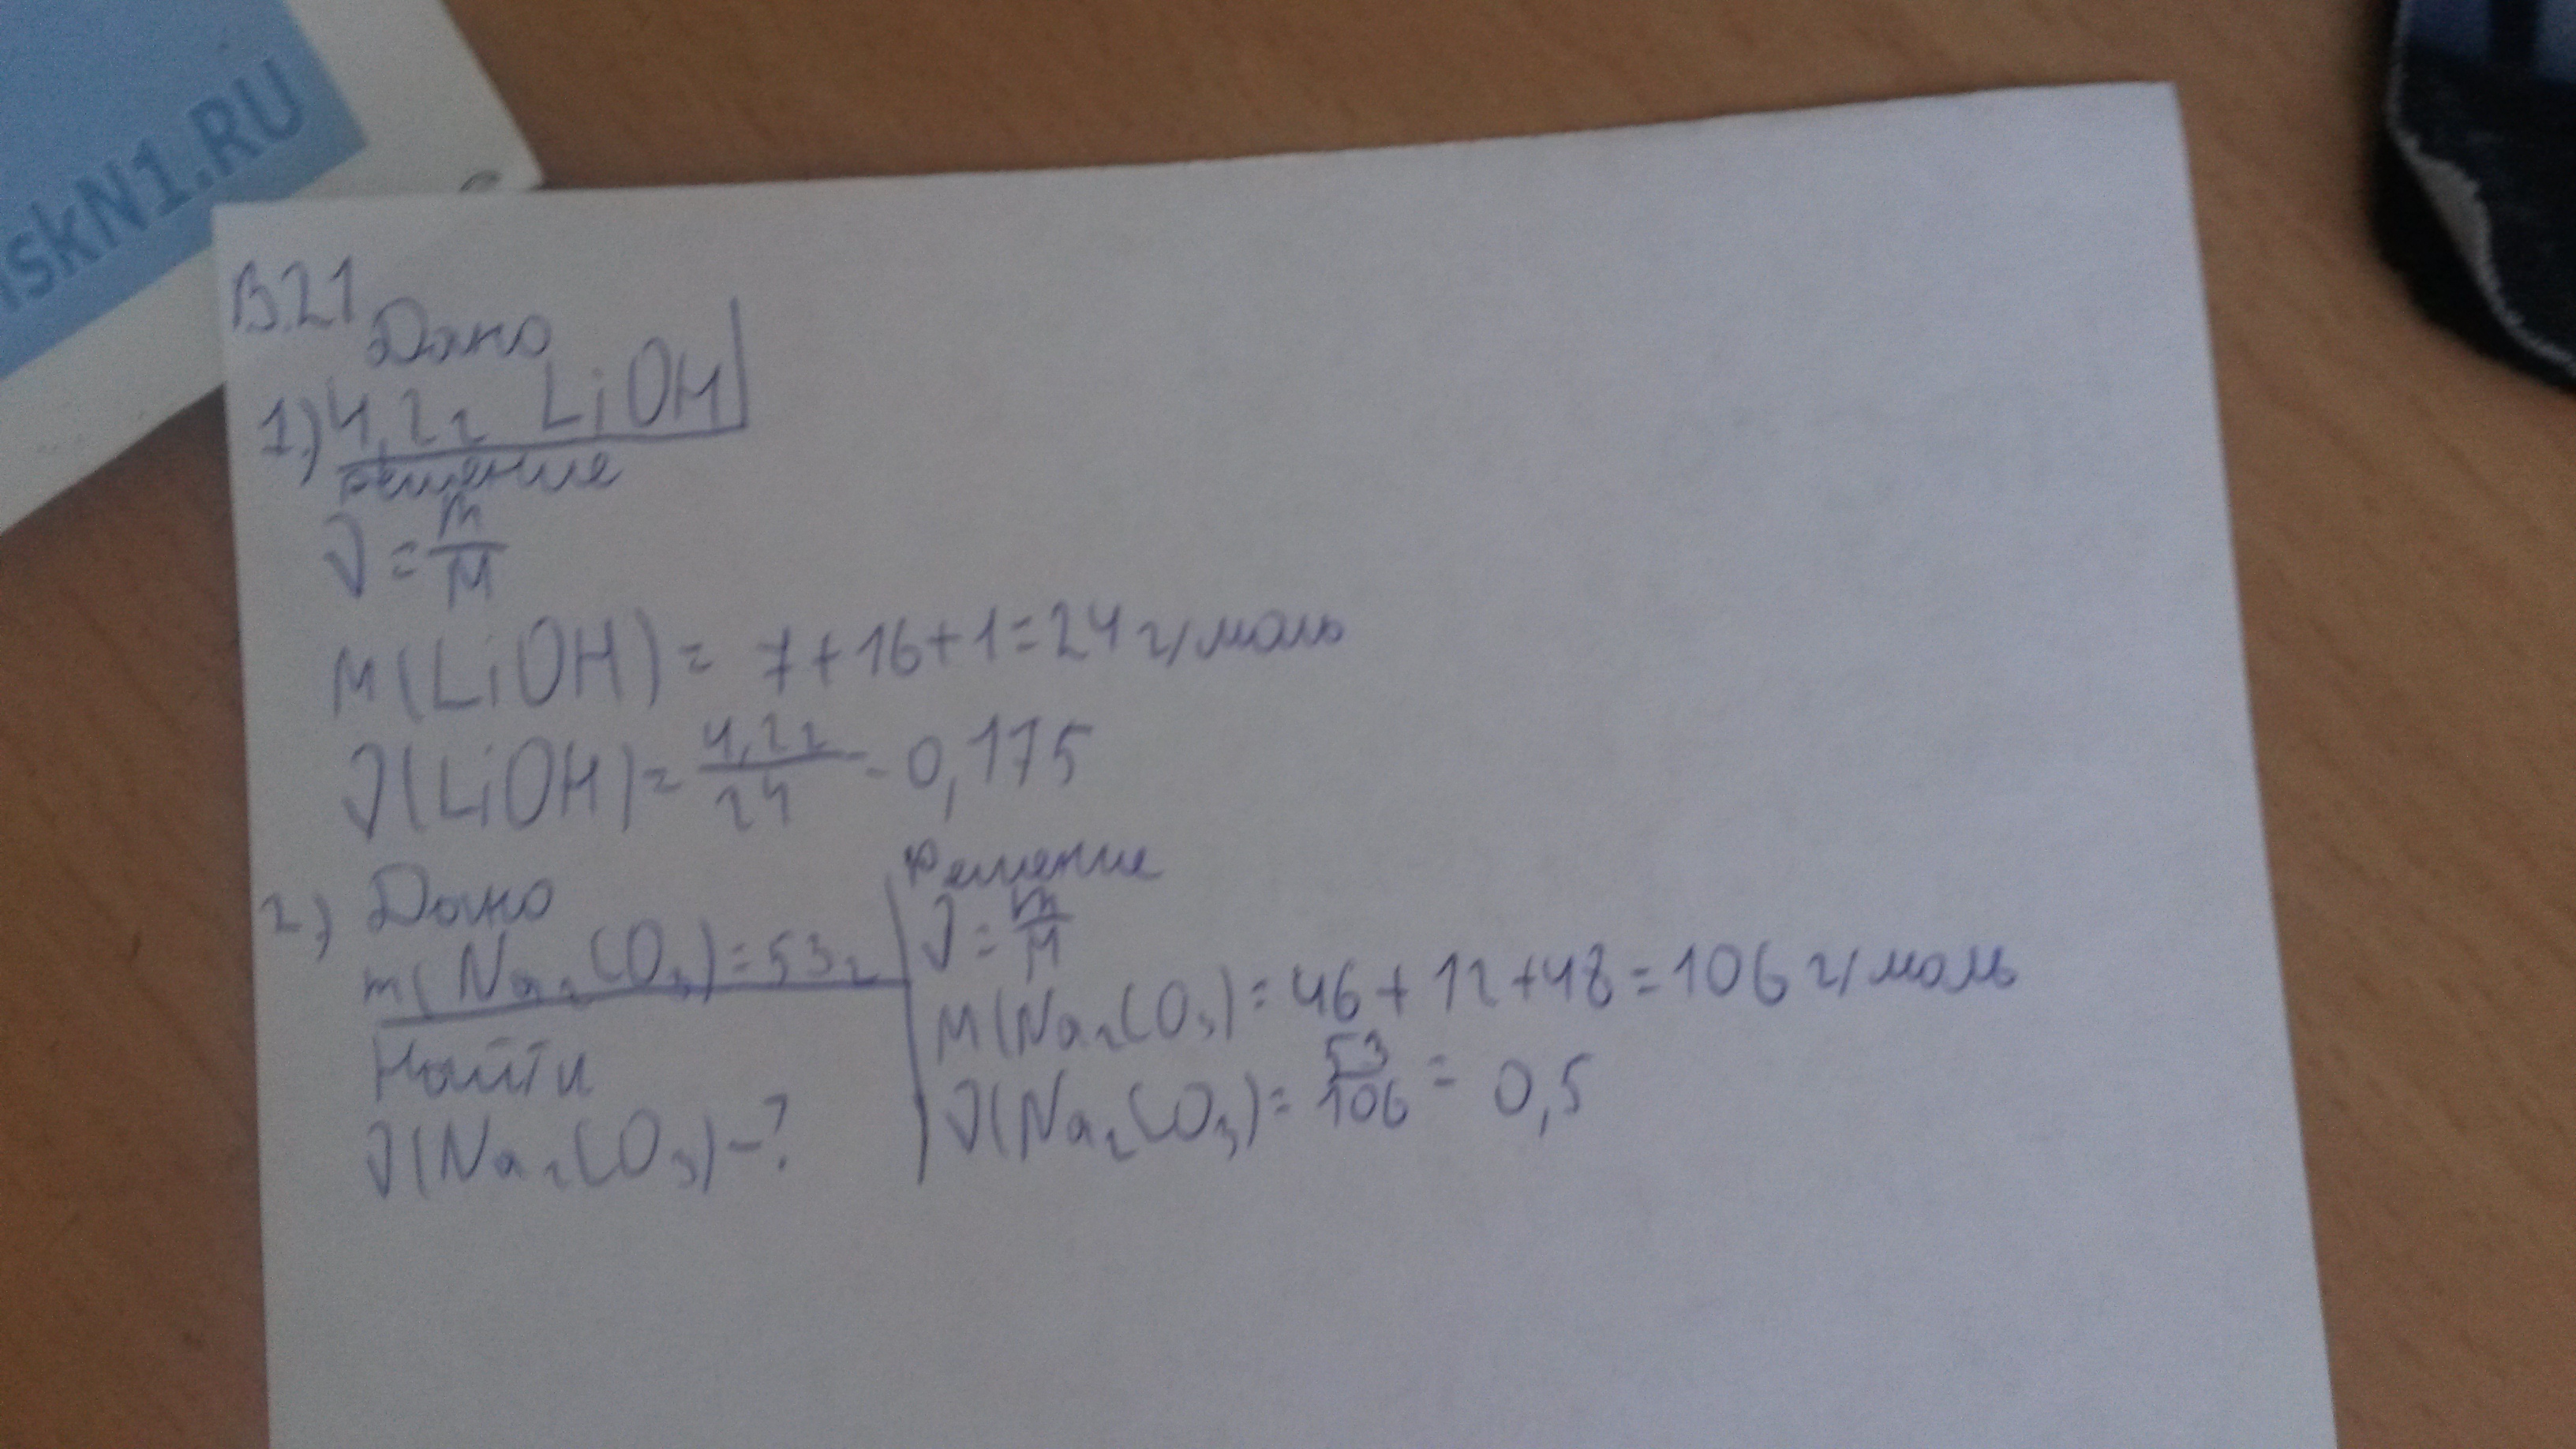 iskN1.RU
В.21
Дано
1) 4,2г LiOH
Решение
ν = m/M
M(LiOH) = 7+16+1=24 г/моль
ν(LiOH)= 4,2г/24 - 0,175
2) Дано
m(Na₂CO₃)=53г
Найти
ν(Na₂CO₃)-?
Решение
ν = m/M
M(Na₂CO₃)=46+12+48=106 г/моль
ν(Na₂CO₃)= 53/106 = 0,5